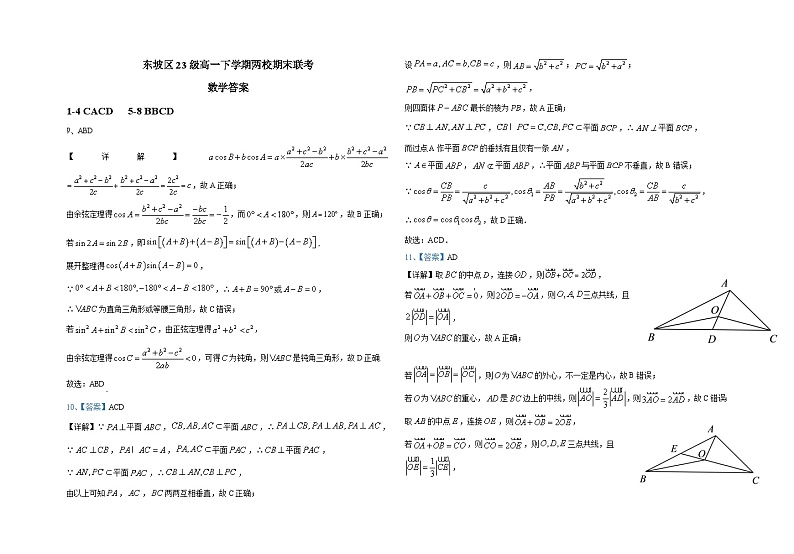 东坡区 23 级高一下学期两校期末联考
数学答案
1-4 CACD 5-8 BBCD
9、ABD
【 详 解 】 a cos B + b cos A = a × (a²+c²−b²)/(2ac) + b × (b²+c²−a²)/(2bc)
= (a²+c²−b²)/(2c) + (b²+c²−a²)/(2c) = 2c²/(2c) = c，故 A 正确；
由余弦定理得 cos A = (b²+c²−a²)/(2bc) = −bc/(2bc) = −1/2，而 0° < A < 180°，则 A = 120°，故 B 正确；
若 sin 2A = sin 2B，即 sin[(A+B)+(A−B)] = sin[(A+B)−(A−B)]，
展开整理得 cos(A+B)sin(A−B) = 0，
∵ 0° < A+B < 180°, −180° < A−B < 180°，∴ A+B = 90° 或 A−B = 0，
∴ VABC 为直角三角形或等腰三角形，故 C 错误；
若 sin² A + sin² B < sin² C，由正弦定理得 a² + b² < c²，
由余弦定理得 cos C = (a²+b²−c²)/(2ab) < 0，可得 C 为钝角，则 VABC 是钝角三角形，故 D 正确
故选：ABD
10、【答案】ACD
【详解】∵ PA⊥平面 ABC，CB, AB, AC ⊂ 平面 ABC，∴ PA⊥CB, PA⊥AB, PA⊥AC，
∵ AC⊥CB，PA I AC = A，PA, AC ⊂ 平面 PAC，∴ CB⊥平面 PAC，
∵ AN, PC ⊂ 平面 PAC，∴ CB⊥AN, CB⊥PC，
由以上可知 PA，AC，BC 两两互相垂直，故 C 正确；
设 PA = a, AC = b, CB = c，则 AB = √(b²+c²)；PC = √(b²+a²)；
PB = √(PC²+CB²) = √(a²+b²+c²)，
则四面体 P−ABC 最长的棱为 PB，故 A 正确；
∵ CB⊥AN, AN⊥PC，CB I PC = C, CB, PC ⊂ 平面 BCP，∴ AN⊥平面 BCP，
而过点 A 作平面 BCP 的垂线有且仅有一条 AN，
∵ A∈平面 ABP，AN ⊄ 平面 ABP，∴平面 ABP 与平面 BCP 不垂直，故 B 错误；
∵ cos θ = CB/PB = c/√(a²+b²+c²), cos θ₁ = AB/PB = √(b²+c²)/√(a²+b²+c²), cos θ₂ = CB/AB = c/√(b²+c²)，
∴ cos θ = cos θ₁ cos θ₂，故 D 正确．
故选：ACD．
11、【答案】AD
【详解】取 BC 的中点 D，连接 OD，则 OB + OC = 2OD，
若 OA + OB + OC = 0，则 2OD = −OA，则 O, A, D 三点共线，且
2|OD| = |OA|，
则 O 为 VABC 的重心，故 A 正确；
A
O
B D C
若 |OA| = |OB| = |OC|，则 O 为 VABC 的外心，不一定是内心，故 B 错误；
若 O 为 VABC 的重心，AD 是 BC 边上的中线，则 |AO| = 2/3 |AD|，则 3AO = 2AD，故 C 错误
取 AB 的中点 E，连接 OE，则 OA + OB = 2OE，
若 OA + OB = CO，则 CO = 2OE，则 O, D, E 三点共线，且
|OE| = 1/3 |CE|，
A
E
O
B C